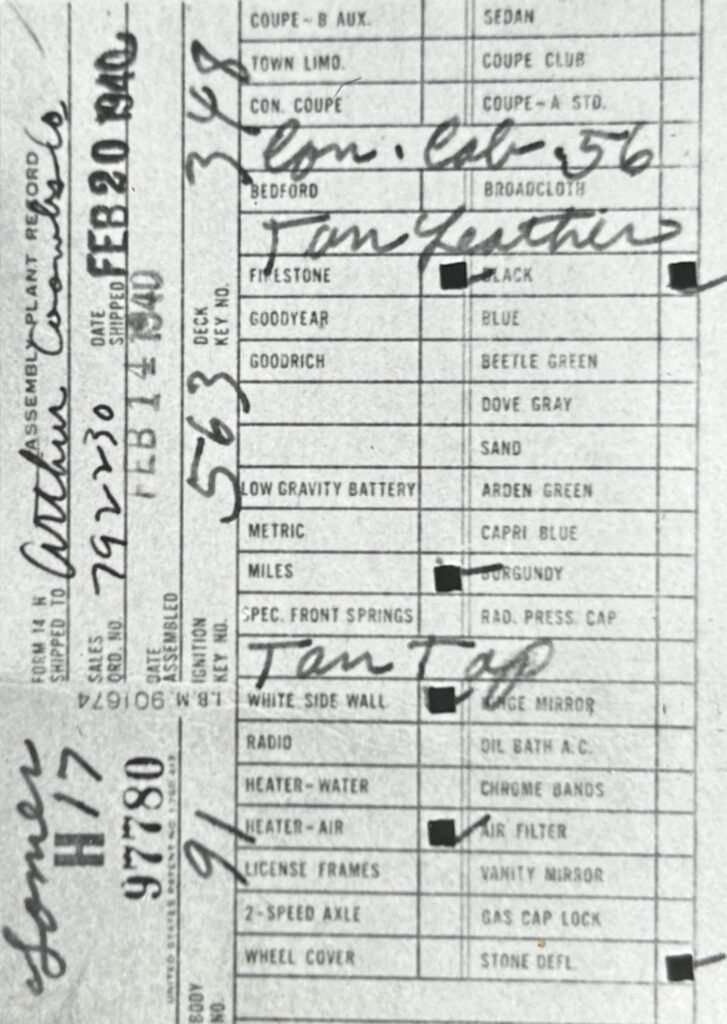 FORM 14 H ASSEMBLY PLANT RECORD
SHIPPED TO Arthur Coombs Co
SALES ORD. NO. 792230
DATE SHIPPED FEB 20 1940
DATE ASSEMBLED FEB 14 1940
IGNITION KEY NO. 563
DECK KEY NO. 348
I.B.M. 901674
H17
97780
UNITED STATES PATENT NO.
BODY NO. 91
COUPE-B AUX. SEDAN
TOWN LIMO. COUPE CLUB
CON. COUPE COUPE-A STD.
Con. Cab. 56
BEDFORD BROADCLOTH
Tan Leather
FIRESTONE BLACK
GOODYEAR BLUE
GOODRICH BEETLE GREEN
DOVE GRAY
SAND
LOW GRAVITY BATTERY ARDEN GREEN
METRIC CAPRI BLUE
MILES BURGUNDY
SPEC. FRONT SPRINGS RAD. PRESS. CAP
Tan Top
WHITE SIDE WALL HINGE MIRROR
RADIO OIL BATH A.C.
HEATER-WATER CHROME BANDS
HEATER-AIR AIR FILTER
LICENSE FRAMES VANITY MIRROR
2-SPEED AXLE GAS CAP LOCK
WHEEL COVER STONE DEFL.